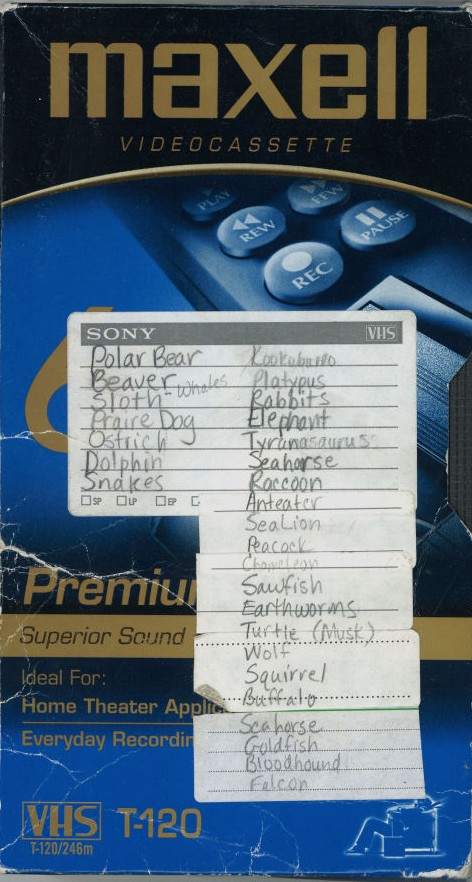 maxell
VIDEOCASSETTE
PLAY
FFWD
REW
PAUSE
REC
6
SONY VHS
Polar Bear
Beaver
Sloth - Whales
Praire Dog
Ostrich
Dolphin
Snakes
SP LP EP
Kookaburro
Platypus
Rabbits
Elephant
Tyranasaurus
Seahorse
Raccoon
Anteater
Sea Lion
Peacock
Chameleon
Sawfish
Earthworms
Turtle (Musk)
Wolf
Squirrel
Buffalo
Seahorse
Goldfish
Bloodhound
Falcon
Premiu
Superior Sound
Ideal For:
Home Theater Applic
Everyday Recordin
VHS T-120
T-120/246m